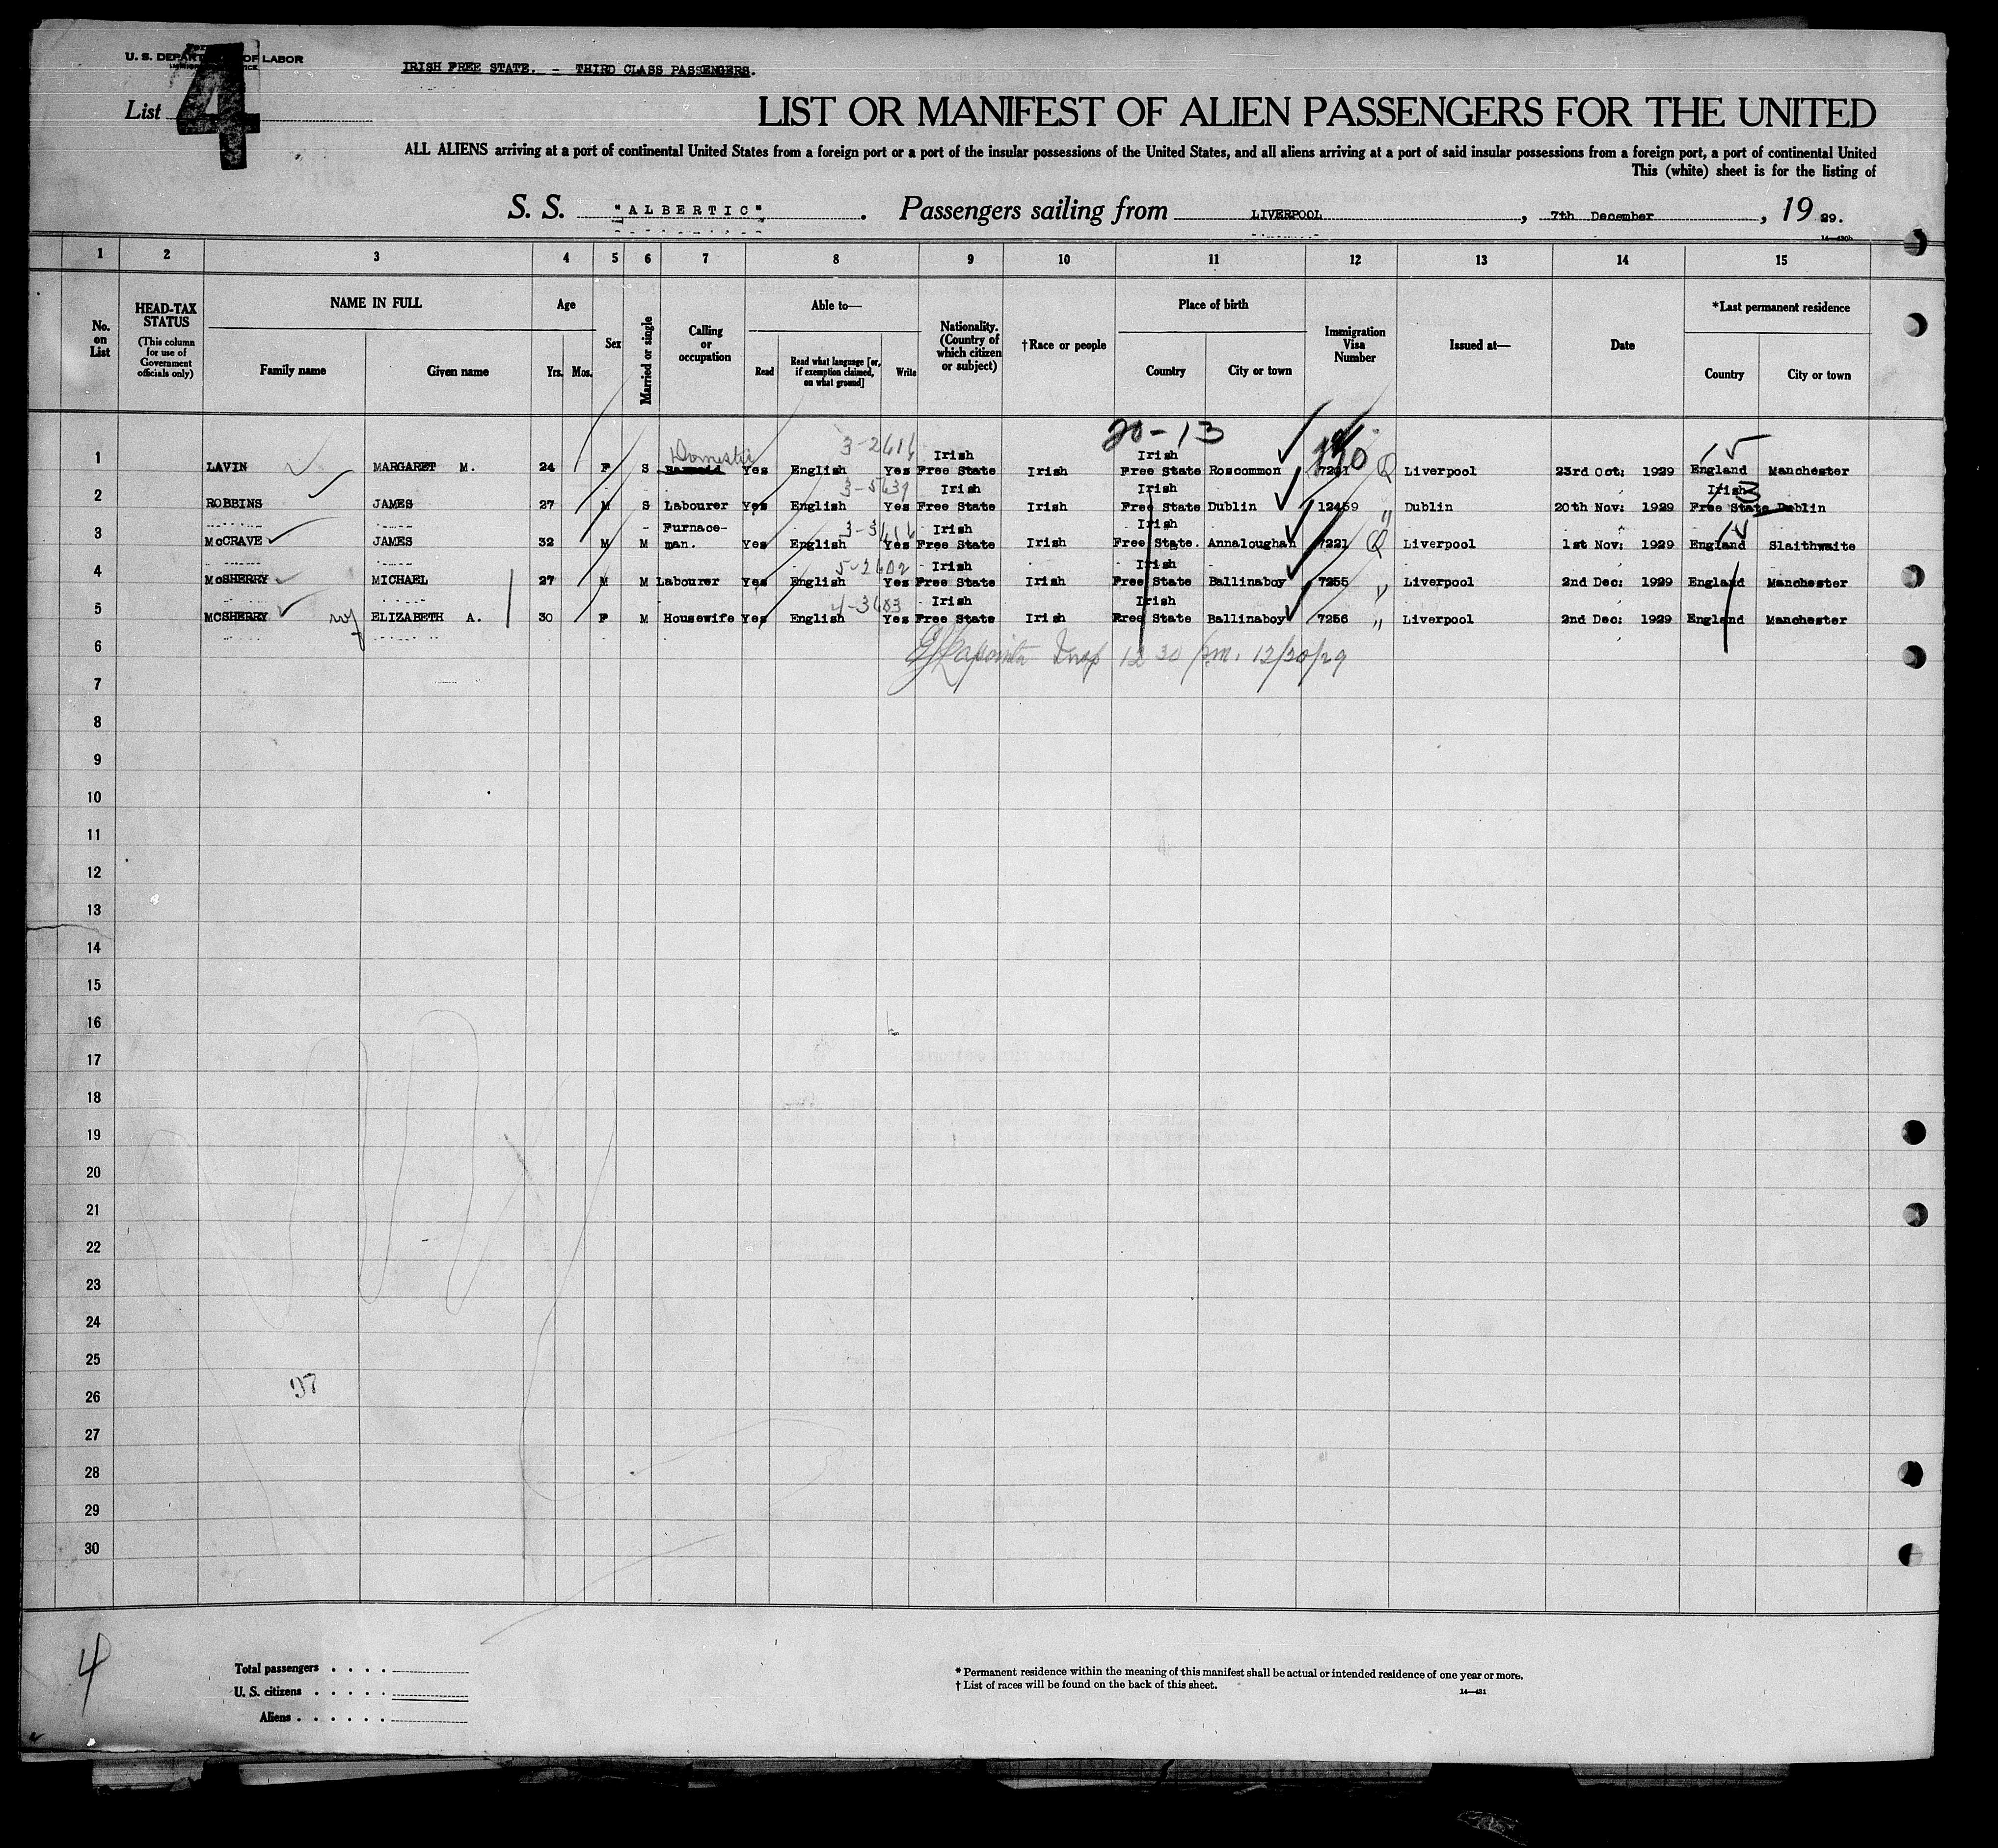 U. S. DEPARTMENT OF LABOR
IRISH FREE STATE. - THIRD CLASS PASSENGERS.
List 4
LIST OR MANIFEST OF ALIEN PASSENGERS FOR THE UNITED
ALL ALIENS arriving at a port of continental United States from a foreign port or a port of the insular possessions of the United States, and all aliens arriving at a port of said insular possessions from a foreign port, a port of continental United
This (white) sheet is for the listing of
S. S. "ALBERTIC". Passengers sailing from LIVERPOOL, 7th December, 19 29.
1 2 3 4 5 6 7 8 9 10 11 12 13 14 15
No. on List
HEAD-TAX STATUS (This column for use of Government officials only)
NAME IN FULL Family name Given name
Age Yrs. Mos.
Sex
Married or single
Calling or occupation
Able to— Read Read what language [or, if exemption claimed, on what ground] Write
Nationality. (Country of which citizen or subject)
†Race or people
Place of birth Country City or town
Immigration Visa Number
Issued at—
Date
*Last permanent residence Country City or town
20-13
Domestic 3-2616 15
1 LAVIN MARGARET M. 24 F S Yes English Yes Irish Free State Irish Irish Free State Roscommon Liverpool 23rd Oct: 1929 England Manchester
3-5639
2 ROBBINS JAMES 27 M S Labourer Yes English Yes Irish Free State Irish Irish Free State Dublin 12459 " Dublin 20th Nov: 1929 Irish Free State Dublin
3 McCRAVE JAMES 32 M M Furnace-man. Yes English Yes Irish Free State Irish Irish Free State. Annaloughan 7221 Q Liverpool 1st Nov: 1929 England Slaithwaite
5-2602
4 McSHERRY MICHAEL 27 M M Labourer Yes English Yes Irish Free State Irish Irish Free State Ballinaboy 7255 " Liverpool 2nd Dec: 1929 England Manchester
4-3603
5 MCSHERRY wf ELIZABETH A. 30 F M Housewife Yes English Yes Irish Free State Irish Irish Rree State Ballinaboy 7256 " Liverpool 2nd Dec: 1929 England Manchester
6 Insp 12 30 pm. 12/20/29
7
8
9
10
11
12
13
14
15
16
17
18
19
20
21
22
23
24
25
26 97
27
28
29
30
4
Total passengers . . . .
U. S. citizens . . . . .
Aliens . . . . . .
* Permanent residence within the meaning of this manifest shall be actual or intended residence of one year or more.
† List of races will be found on the back of this sheet.
14—431